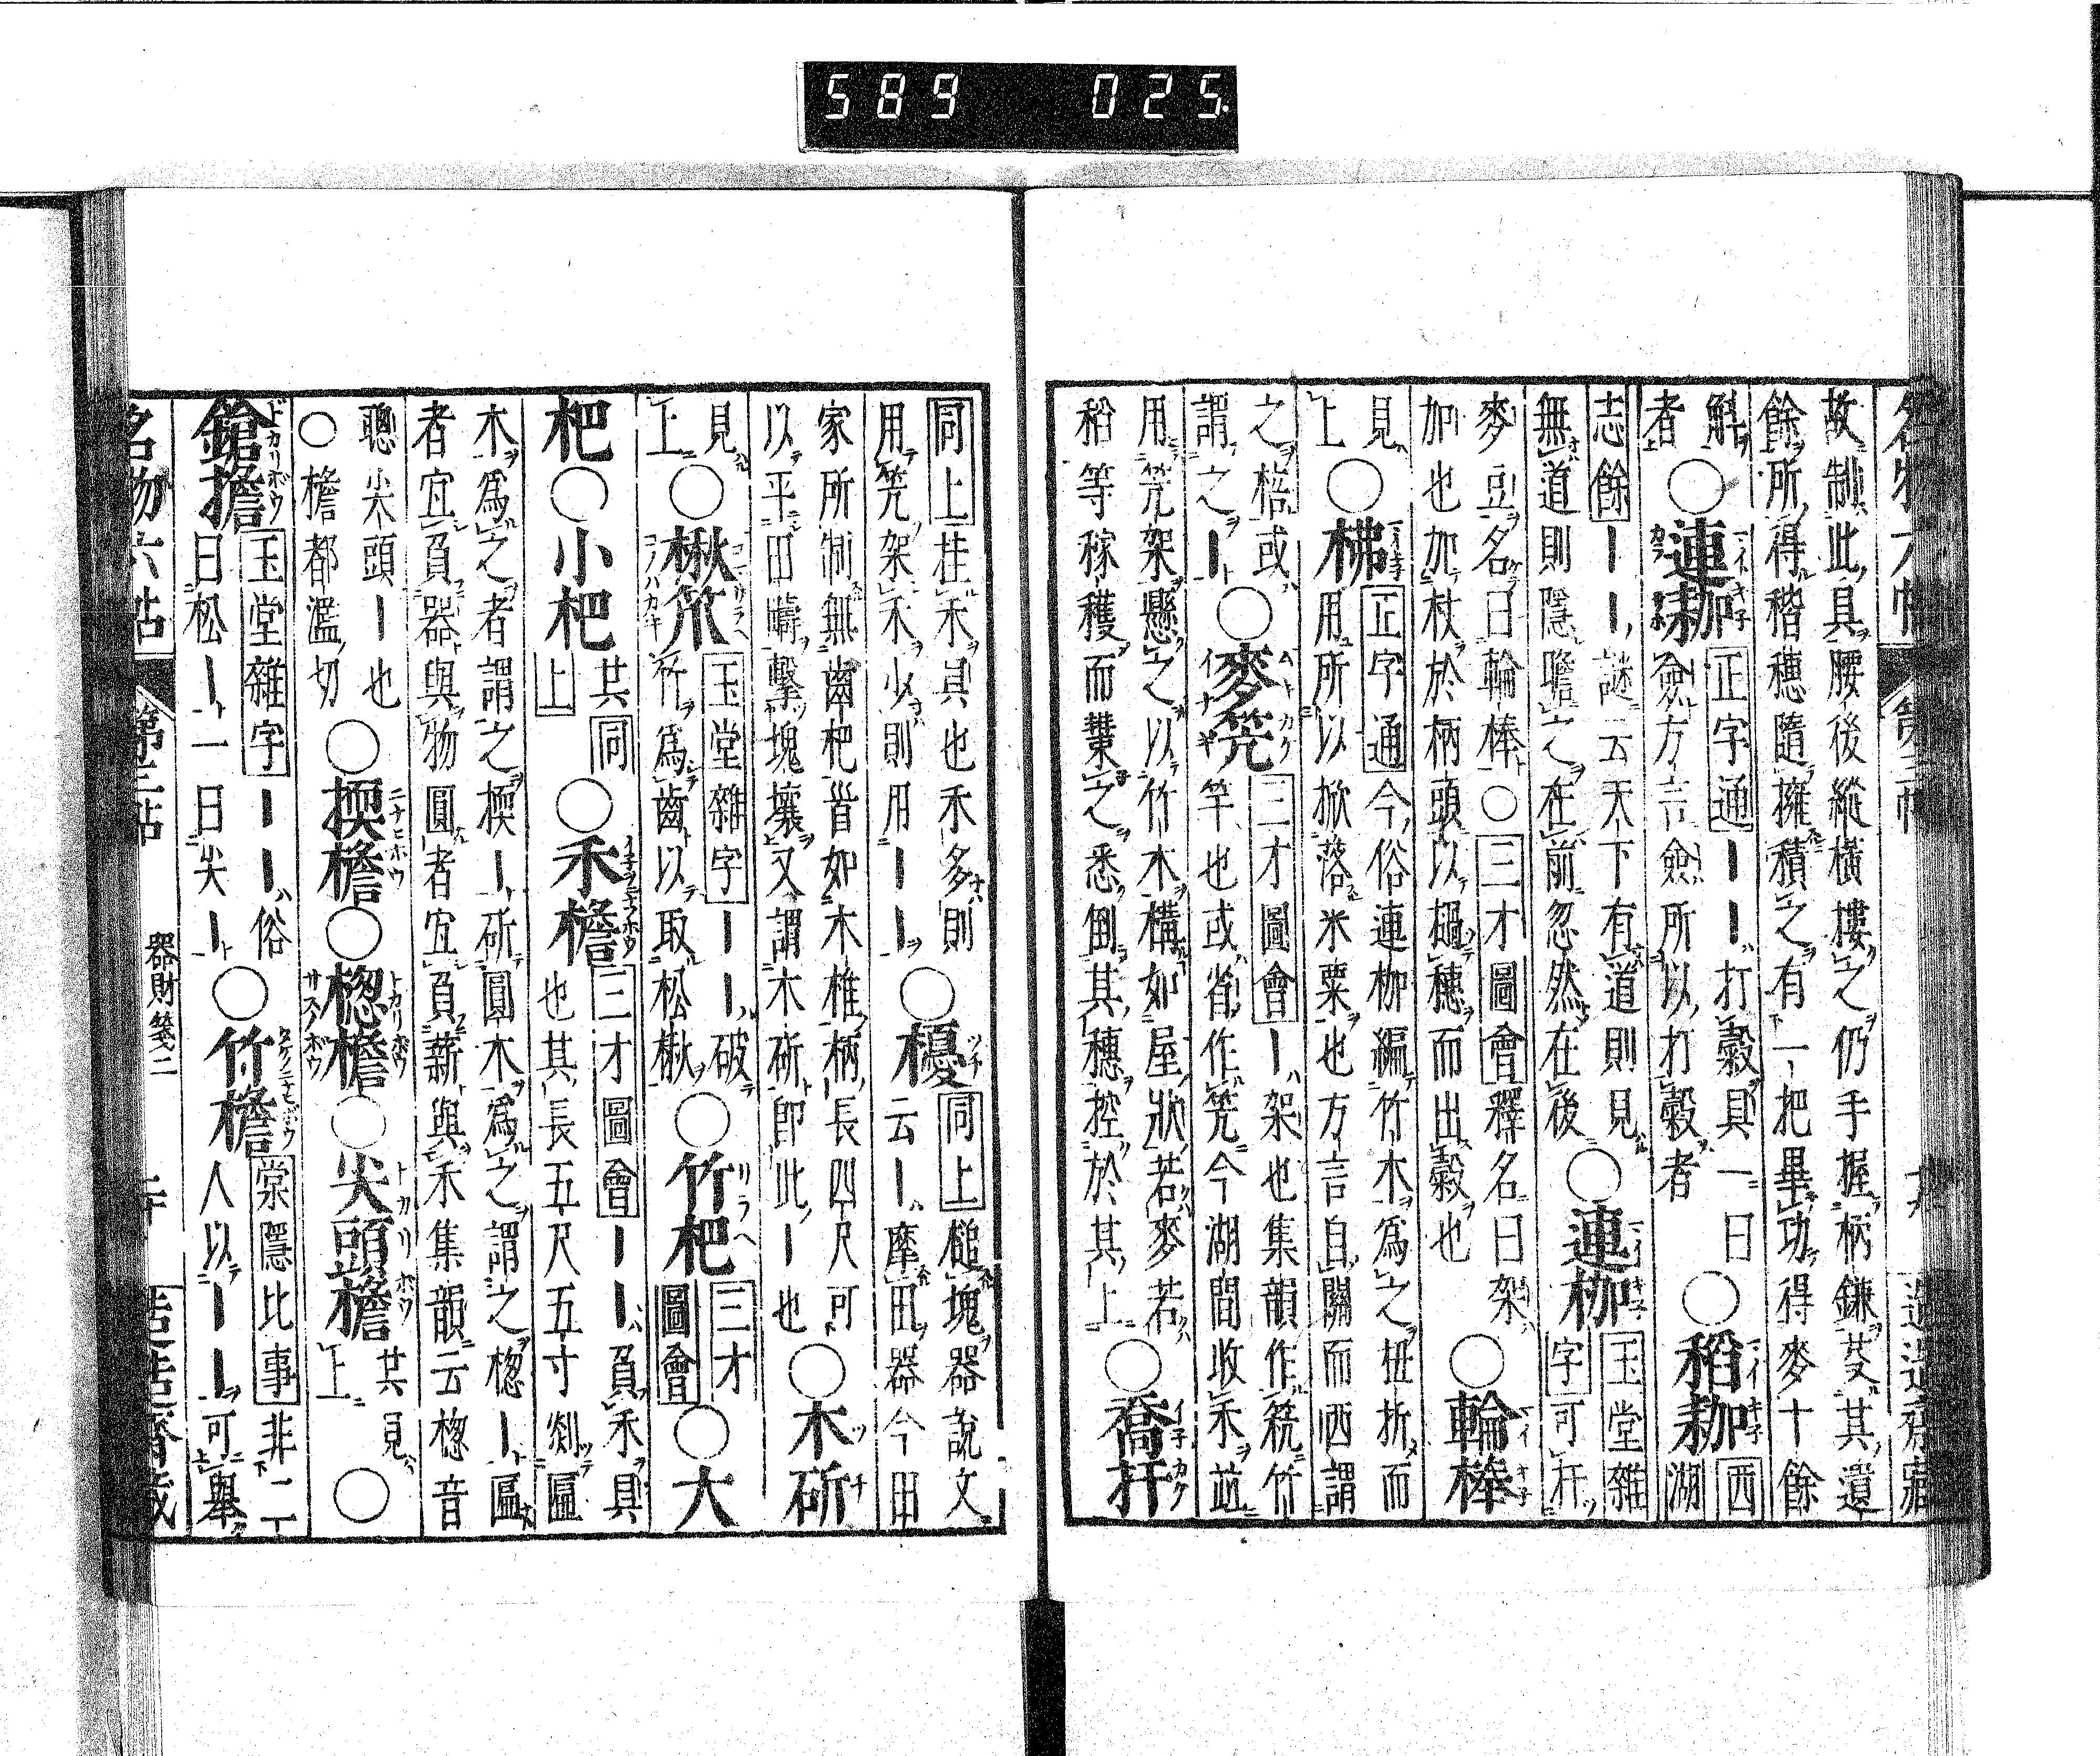 故制此具腰後縱橫摟之仍手握柄鎌芟其遺
餘所得稭穗隨擁積之有一把畢功得麥十餘
斛者○連耞 正字通｜｜打穀具一曰僉方言僉所以打穀者○稻耞 西湖
志餘｜｜謎云天下有道則見
無道則隱瞻之在前忽然在後○連枷 玉堂雜字可杆
麥豆名曰輪棒○三才圖會釋名曰架
加也加杖於柄頭以撾穗而出穀也○輪棒
見上○梻 正字通今俗連枷編竹木爲之扭折而
用所以掀落米粟也方言自關而西謂
之棓或謂之｜○麥笐 三才圖會｜架也集韻作䇪竹
竿也或省作笐今湖間收禾並
用笐架懸之以竹木構如屋狀若麥若
稻等稼穫而之悉倒其穗控於其上○喬扦
同上挂禾具也禾多則
用笐架禾少則用｜｜○櫌 同上槌塊器說文
云｜摩田器今田
家所制無齒杷首如木椎柄長四尺可
以平田疇擊塊壤又謂木斫卽此｜也○木斫
見上○楸笊 玉堂雜字｜｜破
竹爲齒以取松楸○竹杷 三才圖會○大
杷○小杷 共同上○禾檐 三才圖會｜｜負禾具
也其長五尺五寸剡匾
木爲之者謂之㮌｜斫圓木爲之謂之楤｜匾
者宜負器與物圓者宜負薪與禾集韻云楤音
聰尖頭｜也
○檐都濫切○㮌檐○楤檐○尖頭檐 共見上○
鎗擔 玉堂雜字｜｜俗
曰松｜一曰尖｜○竹檐 棠隱比事非二
人以｜｜可舉
器財箋二
589 025